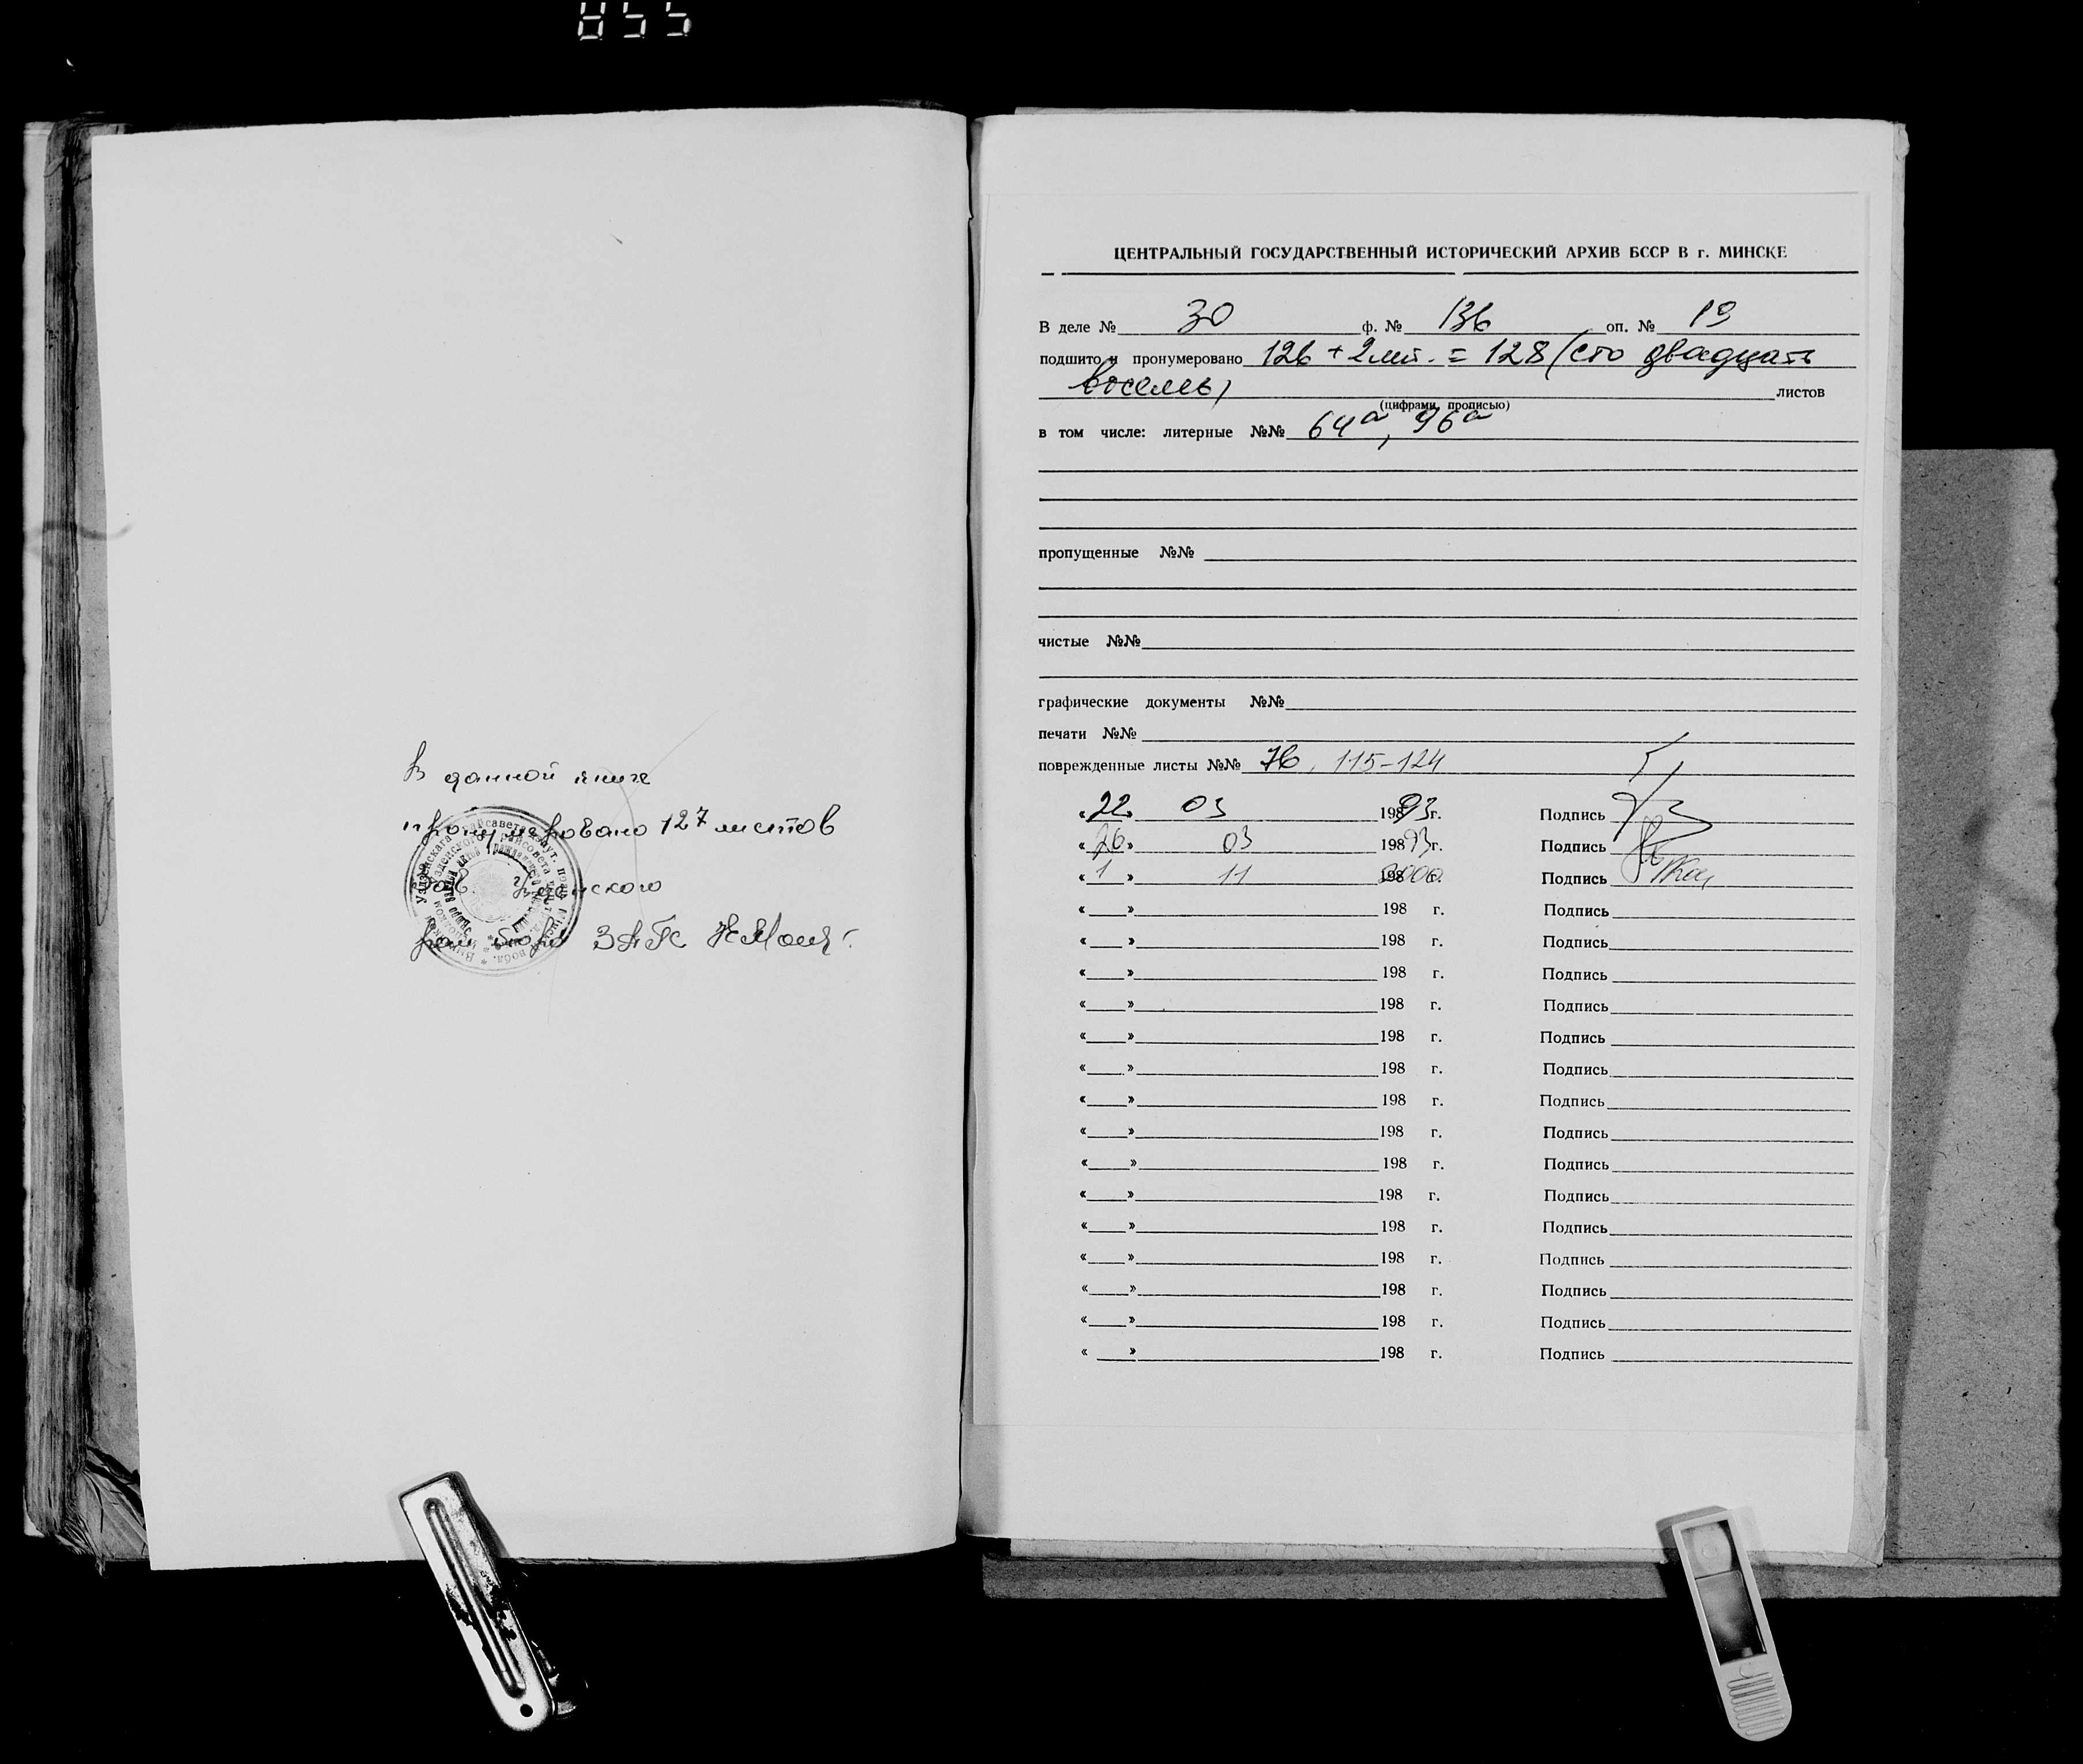 855
В данной книге
пронумеровано 127 листов
Зав. Узденского
рай бюро ЗАГС
ЦЕНТРАЛЬНЫЙ ГОСУДАРСТВЕННЫЙ ИСТОРИЧЕСКИЙ АРХИВ БССР В г. МИНСКЕ
В деле № 30 ф. № 136 оп. № 19
подшито и пронумеровано 126 + 2 лит. = 128 (сто двадцать
восемь) листов
(цифрами, прописью)
в том числе: литерные №№ 64а, 96а
пропущенные №№
чистые №№
графические документы №№
печати №№
поврежденные листы №№ 76, 115-124
«22» 03 1993г. Подпись
«26» 03 1993г. Подпись
«1» 11 2000г. Подпись
« » 198 г. Подпись
« » 198 г. Подпись
« » 198 г. Подпись
« » 198 г. Подпись
« » 198 г. Подпись
« » 198 г. Подпись
« » 198 г. Подпись
« » 198 г. Подпись
« » 198 г. Подпись
« » 198 г. Подпись
« » 198 г. Подпись
« » 198 г. Подпись
« » 198 г. Подпись
« » 198 г. Подпись
« » 198 г. Подпись